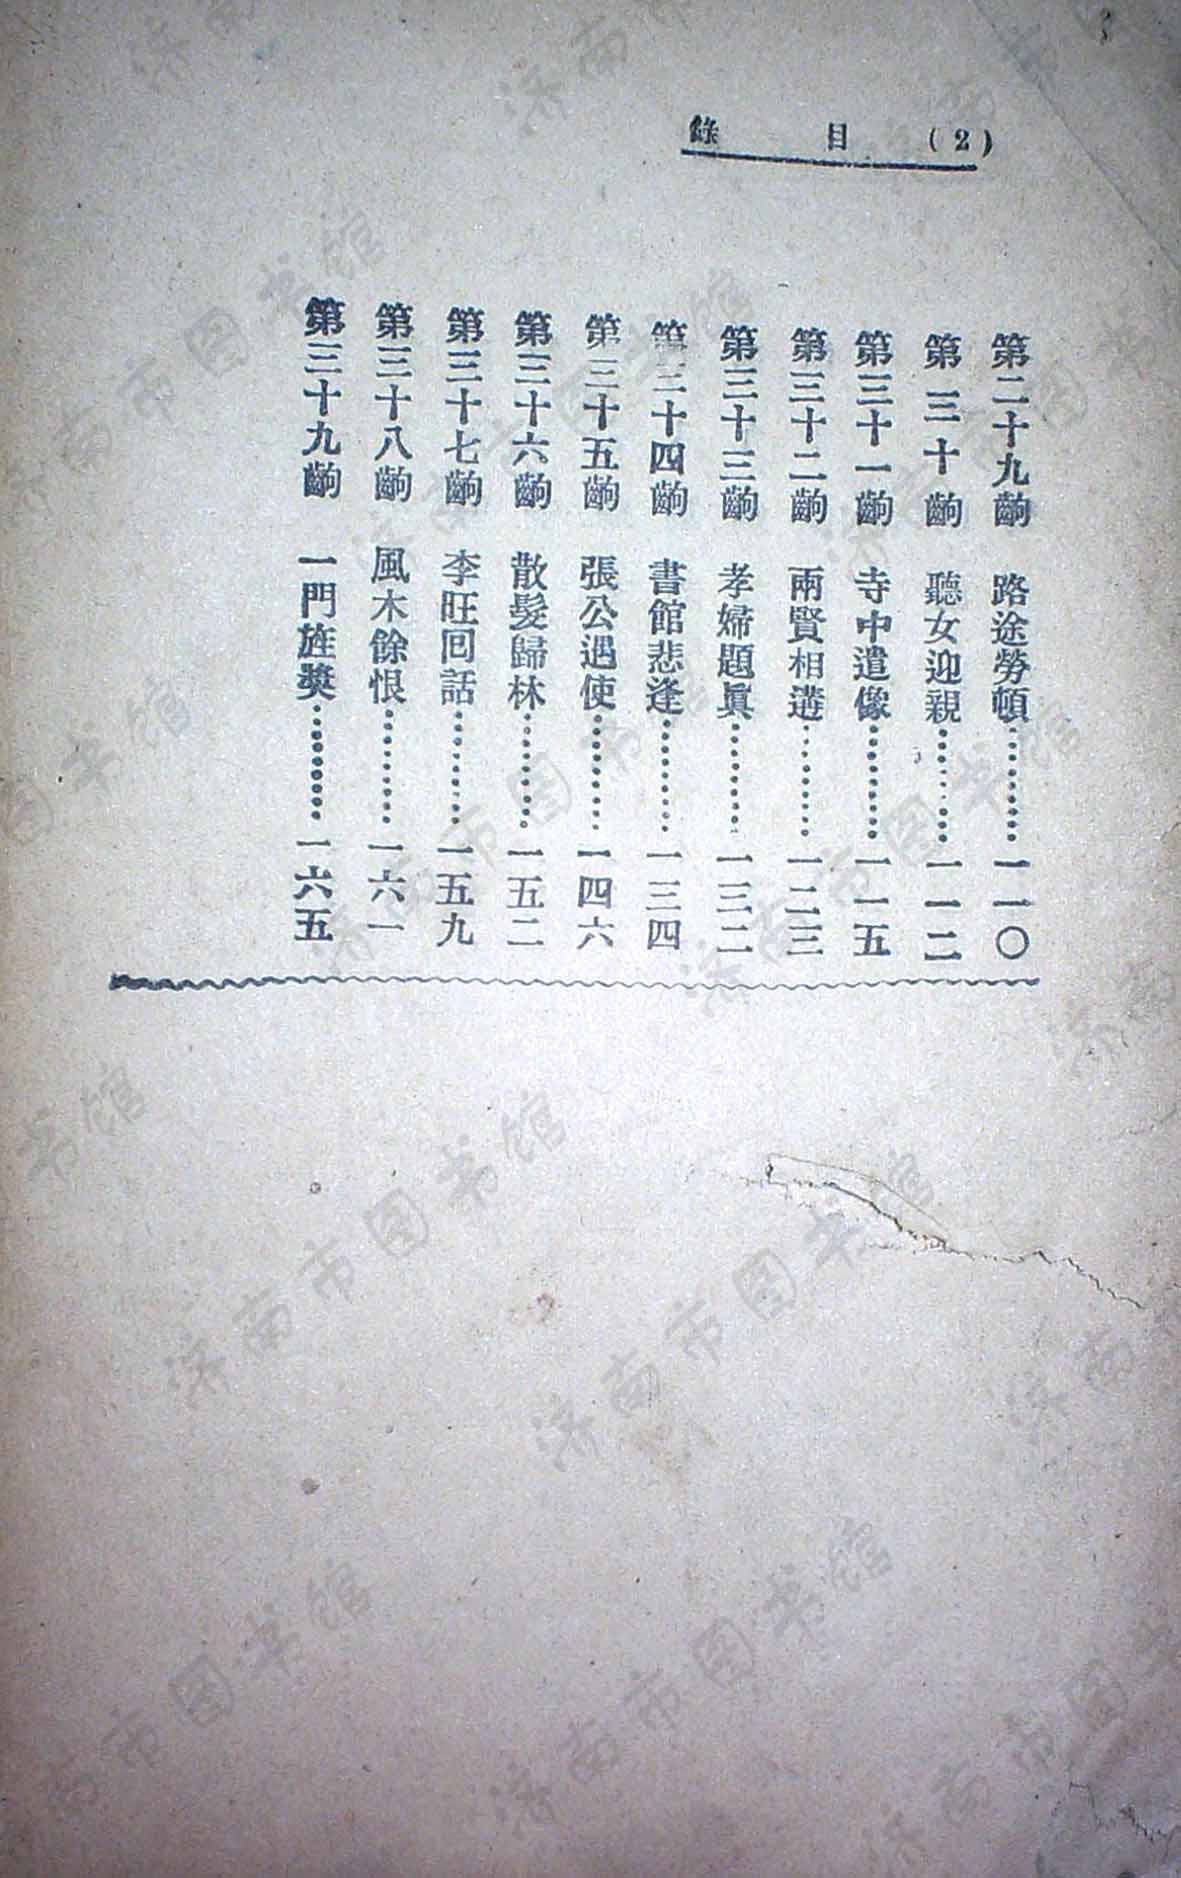 (2) 目 錄
第二十九齣 路途勞頓………一一〇
第三十齣 聽女迎親………一一二
第三十一齣 寺中遺像………一一五
第三十二齣 兩賢相遘………一二三
第三十三齣 孝婦題眞………一三二
第三十四齣 書館悲逢………一三四
第三十五齣 張公遇使………一四六
第三十六齣 散髮歸林………一五二
第三十七齣 李旺回話………一五九
第三十八齣 風木餘恨………一六一
第三十九齣 一門旌獎………一六五
济南市图书馆